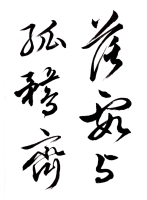 落霞与
孤鹜齐